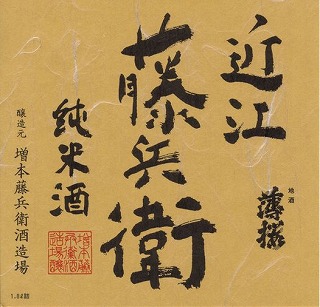 近江
地酒
薄桜
藤兵衛
純米酒
醸造元 増本藤兵衛酒造場